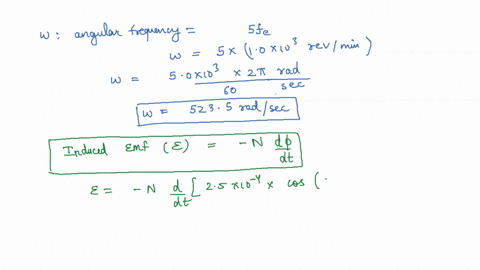 w: angular frequency = 5fe
w = 5 x (1.0 x 10³ rev/min)
w = 5.0x10³ x 2π rad / 60 sec
w = 523.5 rad/sec
Induced Emf (ε) = -N dϕ/dt
ε = -N d/dt [ 2.5 x10⁻⁴ x cos (